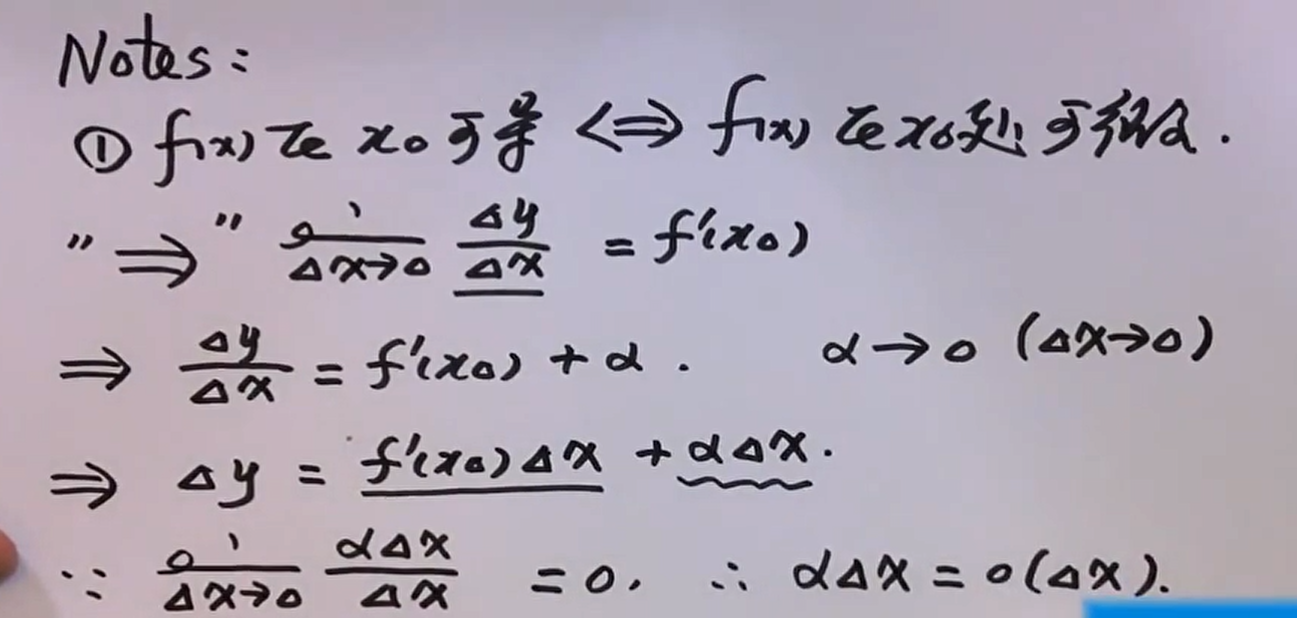 Notes:
① f(x) 在 x₀ 可导 ⟺ f(x) 在 x₀ 处可微.
"⇒" lim_{Δx→0} Δy/Δx = f'(x₀)
⇒ Δy/Δx = f'(x₀) + α. α→0 (Δx→0)
⇒ Δy = f'(x₀)Δx + αΔx.
∵ lim_{Δx→0} αΔx/Δx = 0, ∴ αΔx = o(Δx).